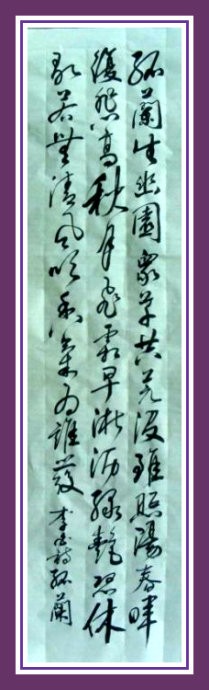 孤蘭生幽園眾草共芜没雖照陽春暉
復悲高秋月飛霜早淅沥綠艷恐休
歇若無清風吹香氣為誰發 李白詩孤蘭